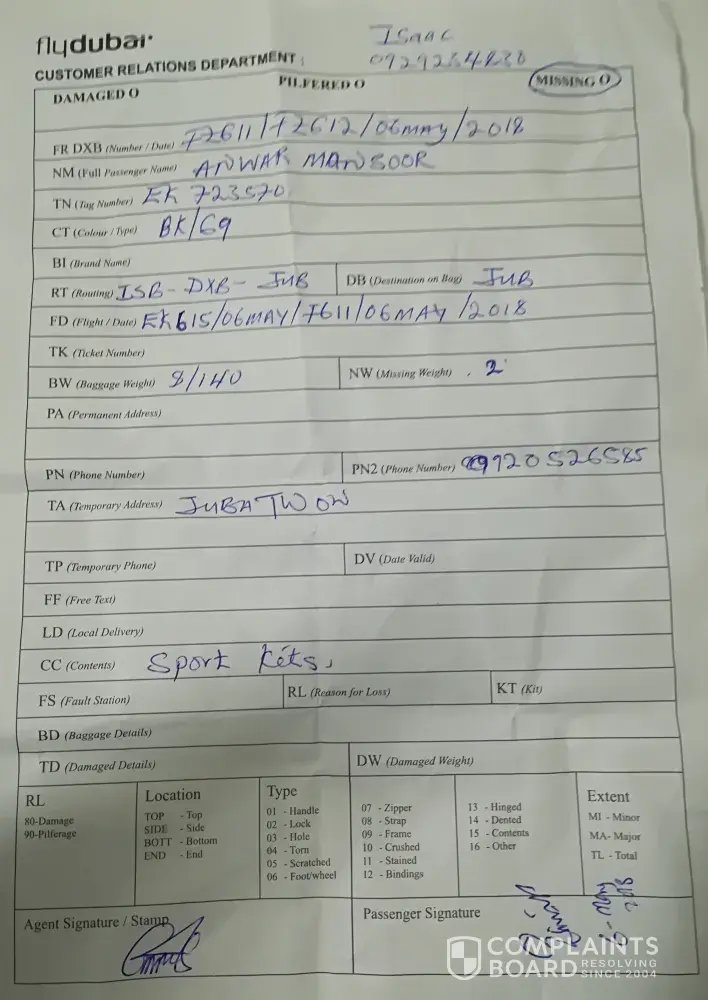 flydubai
Isaac
0929234238
CUSTOMER RELATIONS DEPARTMENT
DAMAGED O PILFERED O MISSING O
FR DXB (Number / Date) FZ611/FZ612/06MAY/2018
NM (Full Passenger Name) ANWAR MANSOOR
TN (Tag Number) EK 723570
CT (Colour / Type) BK/69
BI (Brand Name)
RT (Routing) ISB - DXB - JUB DB (Destination on Bag) JUB
FD (Flight / Date) EK615/06MAY/F611/06MAY/2018
TK (Ticket Number)
BW (Baggage Weight) 8/140 NW (Missing Weight) 2
PA (Permanent Address)
PN (Phone Number) PN2 (Phone Number) 0920526585
TA (Temporary Address) JUBA TWOW
TP (Temporary Phone) DV (Date Valid)
FF (Free Text)
LD (Local Delivery)
CC (Contents) Sport Kits,
FS (Fault Station) RL (Reason for Loss) KT (Kit)
BD (Baggage Details)
TD (Damaged Details) DW (Damaged Weight)
RL
80-Damage
90-Pilferage
Location
TOP - Top
SIDE - Side
BOTT - Bottom
END - End
Type
01 - Handle
02 - Lock
03 - Hole
04 - Torn
05 - Scratched
06 - Foot/wheel
07 - Zipper
08 - Strap
09 - Frame
10 - Crushed
11 - Stained
12 - Bindings
13 - Hinged
14 - Dented
15 - Contents
16 - Other
Extent
MI - Minor
MA- Major
TL - Total
Agent Signature / Stamp
Passenger Signature
COMPLAINTS
BOARD RESOLVING
SINCE 2004